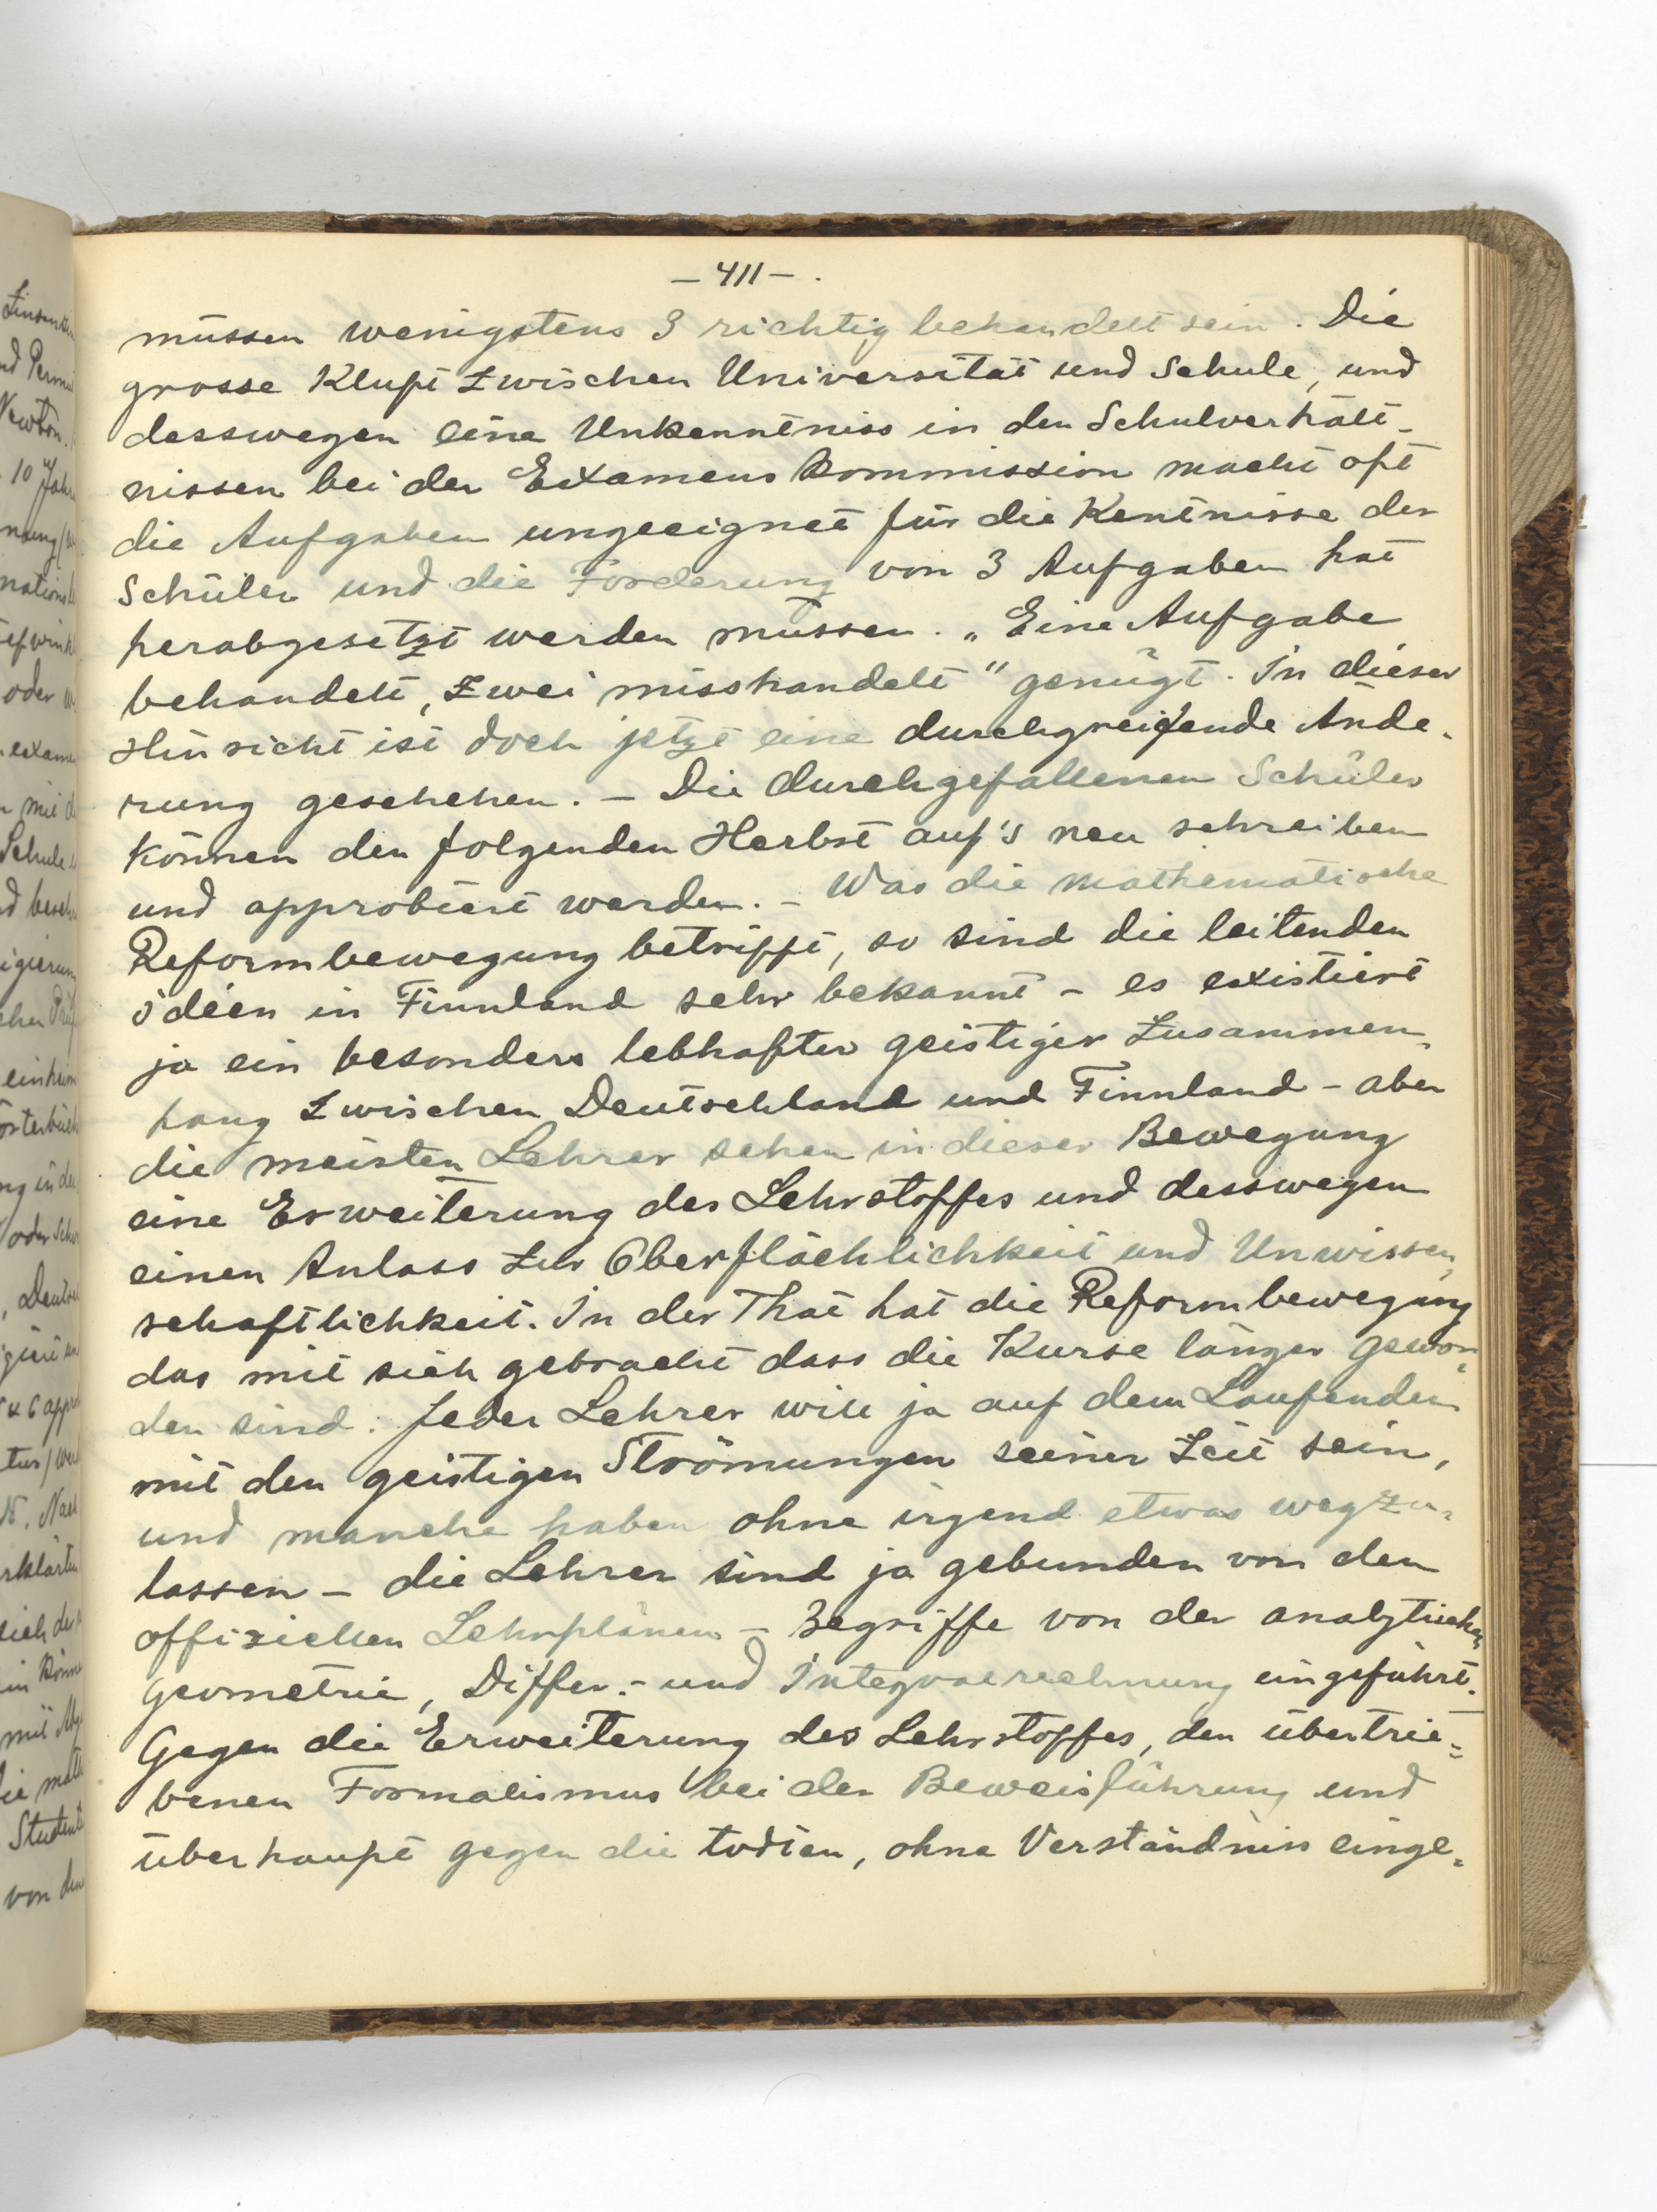 – 411 – .
müssen wenigstens 3 richtig behandelt sein. Die
grosse Kluft zwischen Universität und Schule, und
desswegen eine Unkenntniss in den Schulverhält-
nissen bei der Examens Kommission macht oft
die Aufgaben ungeeignet für die Kentnisse der
Schüler und die Forderung von 3 Aufgaben hat
herabgesetzt werden müssen. „Eine Aufgabe
behandelt, zwei misshandelt" genügt. In dieser
Hinsicht ist doch jetzt eine durchgreifende Ände-
rung geschehen. – Die durchgefallenen Schüler
können den folgenden Herbst auf's neu schreiben
und approbiert werden. – Was die mathematische
Reformbewegung betrifft, so sind die leitenden
Idéen in Finnland sehr bekannt – es existiert
ja ein besonders lebhafter geistiger Zusammen-
hang zwischen Deutschland und Finnland – aber
die meisten Lehrer sehen in dieser Bewegung
eine Erweiterung des Lehrstoffes und desswegen
einen Anlass zur Oberflächlichkeit und Unwissen-
schaftlichkeit. In der That hat die Reformbewegung
das mit sich gebracht dass die Kurse länger gewor-
den sind. Jeder Lehrer will ja auf dem Laufenden
mit den geistigen Strömungen seiner Zeit sein,
und manche haben ohne irgend etwas wegzu-
lassen – die Lehrer sind ja gebunden von den
offiziellen Lehrplänen – Begriffe von der analytischen
Geometrie, Differ.- und Integralrechnung eingeführt.
Gegen die Erweiterung des Lehrstoffes, den übertrie-
benen Formalismus bei der Beweisführung und
überhaupt gegen die todten, ohne Verständniss einge-